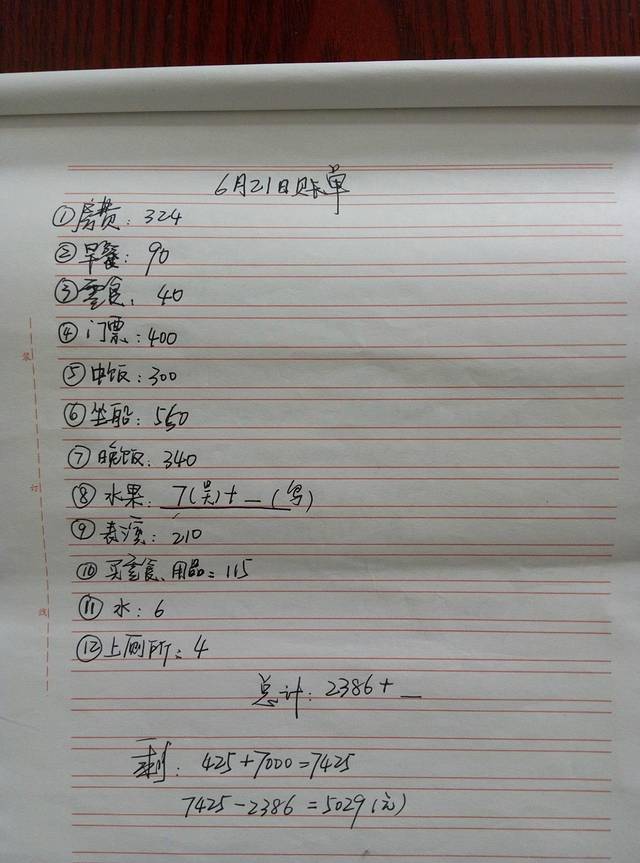 6月21日账单
①房费：324
②早餐：90
③零食：40
④门票：400
⑤中饭：300
⑥坐船：550
⑦晚饭：340
⑧水果：7(吴)+_(写)
⑨表演：210
⑩买零食、用品：115
⑪水：6
⑫上厕所：4
总计：2386+_
剩：425+7000=7425
7425-2386=5029(元)
装
订
线